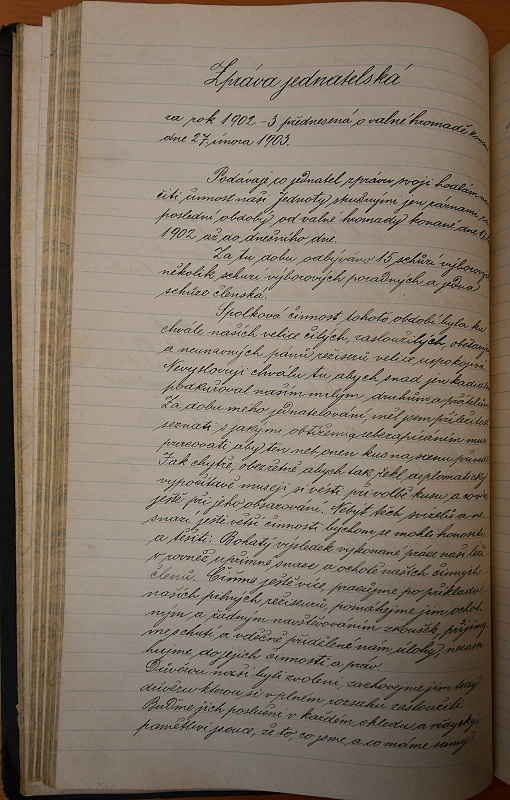 Zpráva jednatelská
za rok 1902-3 přednesená o valné hromadě konané
dne 27. února 1903.
Podávaje co jednatel zprávu svoji hodlám
čiti činnost naší Jednoty stručnými jen ráznami
poslední období od valné hromady konané dne
1902 až do dnešního dne.
Za tu dobu odbýváno 15 schůzí výborových
několik schůzí výborových poradných a jedna
schůze členská.
Spolková činnost tohoto období byla ku
chvále našich velice čilých, zasloužilých, obětavých
a neunavných pánů režiserů velice uspokojivá.
Nevyslovuji chválu tu abych snad jen kadidlo
pokuřoval našim milým druhům a přátelům
Za dobu mého jednatelování, měl jsem příležitost
seznati s jakými obtížemi a sebezapíraním musí
pracovati, aby ten neb onen kus na scenu přivedli
Jak chytře, obezřetně abych tak řekl diplomaticky
vypočítavě musejí si vésti při volbě kusu a
ještě při jeho obsazování. Nebýt těch svízelů a ne-
snází ještě větší činností bychom se mohli honositi
a těšiti. Bohatý výsledek vykonané práce naší leží
v rovněž upřímné snaze a ochotě našich činných
členů. Čiňme ještě více, pracujme po příkladu
našich pilných režiserů, pomáhejme jim ochot-
ným a řádným navštěvováním zkoušek, přijíma-
me s chutí a vděčně přidělené nám úlohy, nesan-
hujme do jejich činnosti a prav.
Důvěrou naší byli zvoleni, zachovejme jim tedy
důvěru kterou si v plném rozsahu zasloužili
Buďme jich poslušni v každém ohledu a vždycky
pamětlivi jsouce, že to, co jsme, a co máme samý